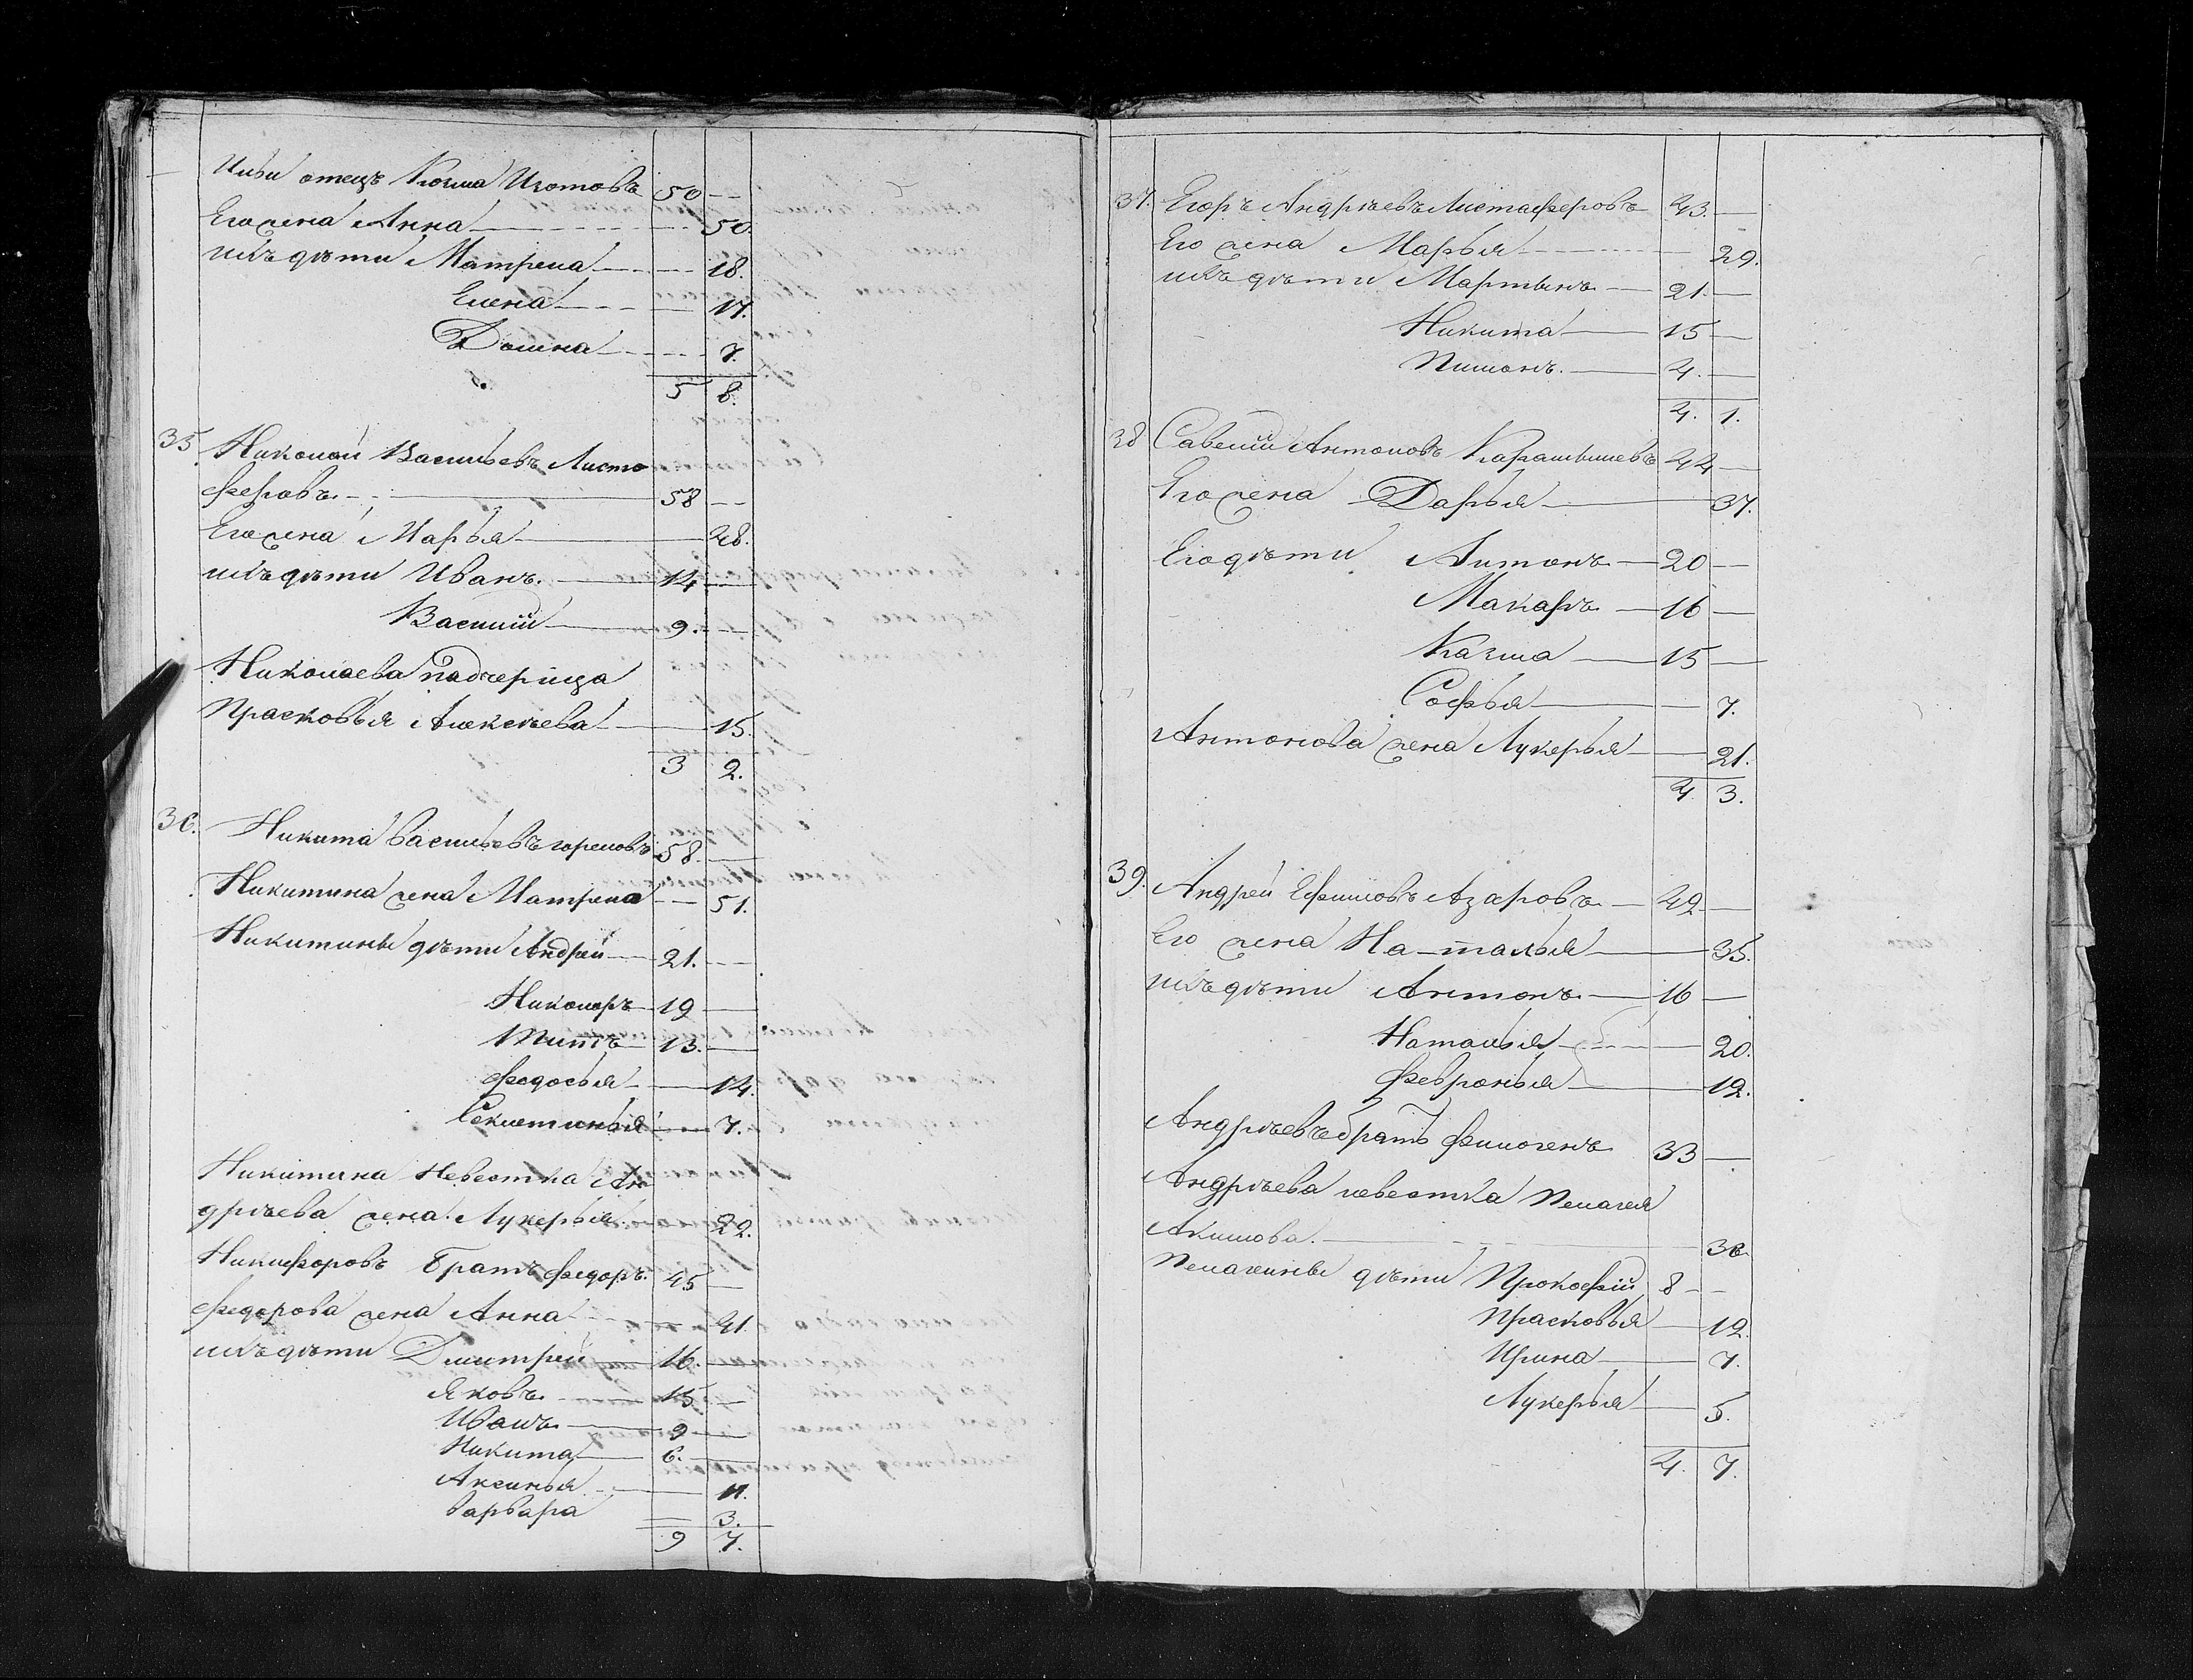 отецъ Козма Изотовъ 50 —
Его жена Анна — 50.
ихъ дѣти Матрена — 18.
Елена — 17.
Домна — 7.
5 8.
35. Николай Васильевъ Листо
феровъ. — 58 —
Его жена Марья — 28.
ихъ дѣти Иванъ. — 14 —
Василій — 9. —
Николаева падчерица
Прасковья Алексѣева — 15.
3 2.
36. Никита Васильевъ 58. —
Никитина жена Матрена — 51.
Никитины дѣти Андрей — 21. —
Никоноръ — 19 —
Титъ — 13. —
Федосья — 14.
Секлетинья — 7.
Никитина Невестка Ан
дрѣева жена Лукерья — 22.
Никифоровъ Братъ Федоръ. 45 —
Федорова жена Анна — 41.
ихъ дѣти Дмитрей — 16. —
Яковъ. — 15 —
Иванъ. — 9 —
Никита — 6. —
Аксинья — 11.
Варвара — 3.
9 7.
37. Егоръ Андрѣевъ Листаферовъ 43. —
Его жена Марья — 29.
ихъ дѣти Мартынъ — 21. —
Никита — 15 —
Пименъ. — 4. —
4. 1.
38 Савелий Антоновъ Карамышевъ 44 —
Его жена Дарья — 37.
Его дѣти Антонъ — 20 —
Макаръ — 16 —
Казма — 15 —
Софья — 7.
Антонова жена Лукерья — 21.
4 3.
39. Андрей Ефимовъ Азаровъ. — 42 —
Его жена На-талья — 35.
ихъ дѣти Антонъ. — 16 —
Наталья — 20.
Февронья — 12.
Андрѣевъ братъ Филогенъ 33 —
Андрѣева невестка Пелагея
Акимова. — 30.
Пелагеины дѣти Прокофій 8 —
Прасковья — 12.
Ирина — 7.
Лукерья — 5.
4. 7.